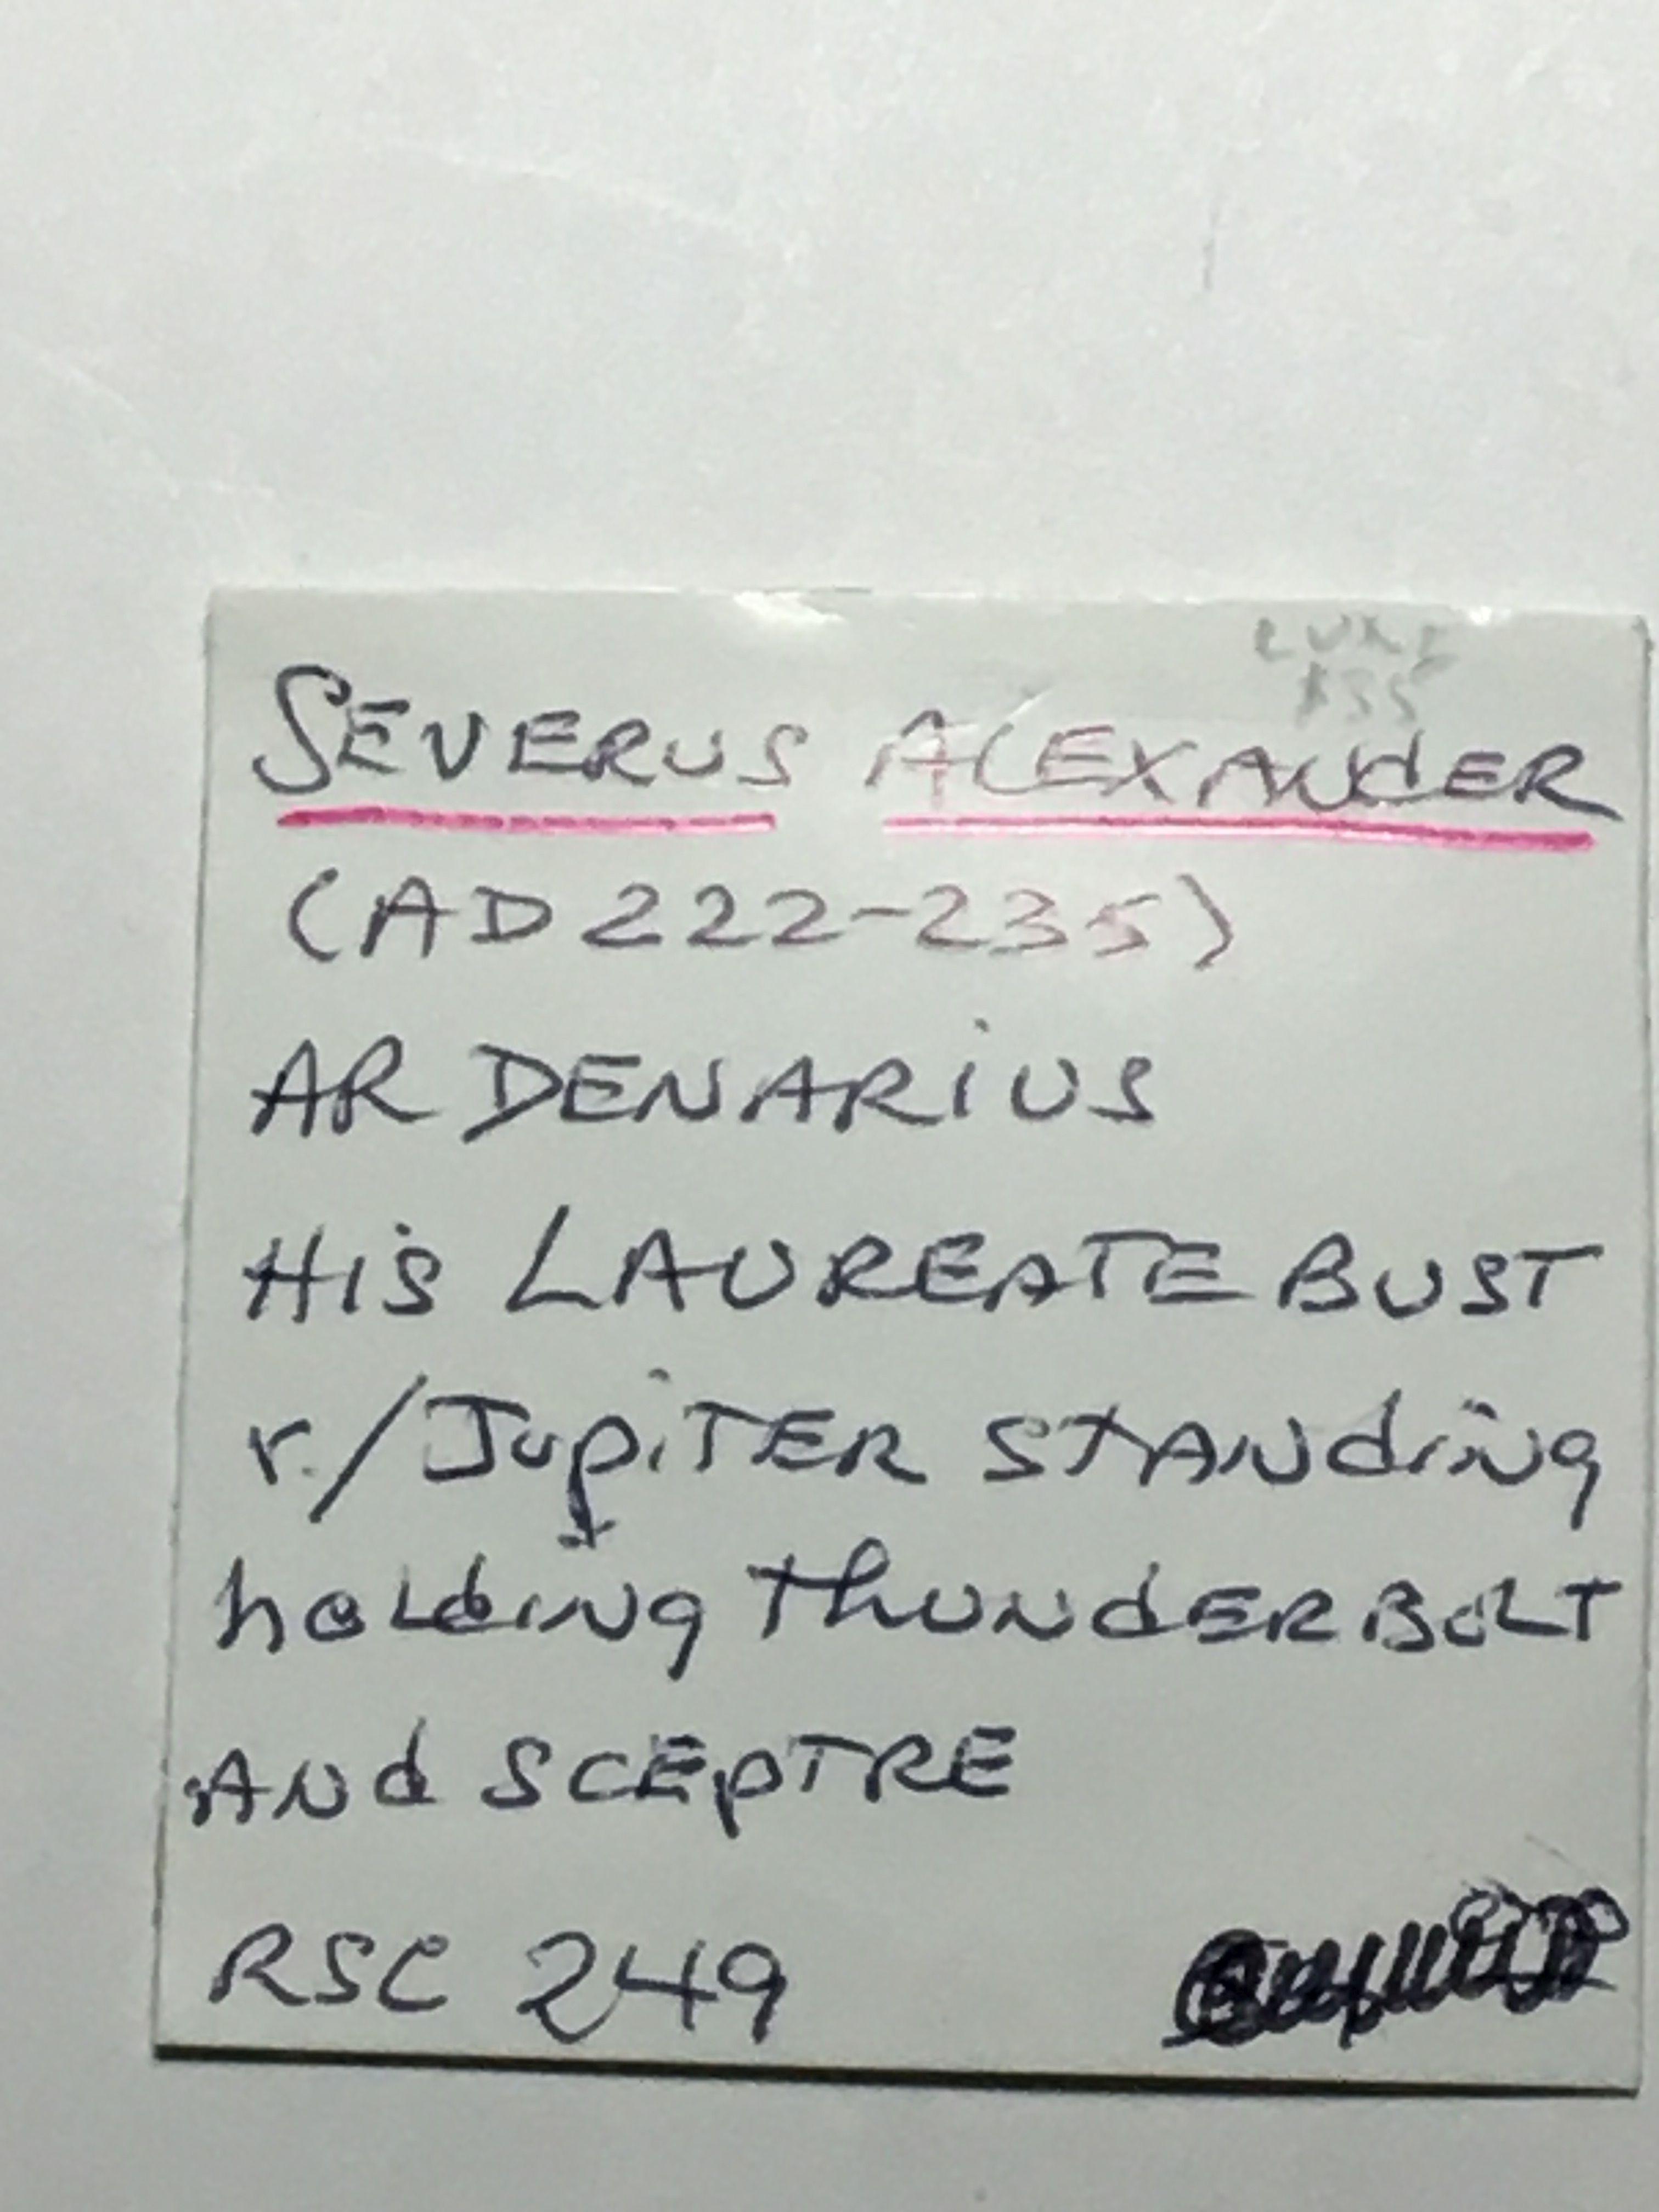 SEVERUS ALEXANDER
(AD 222-235)
AR DENARIUS
HIS LAUREATE BUST
r./JupiTER STANding
holding thuNdERBOLT
ANd SCEpTRE
RSC 249